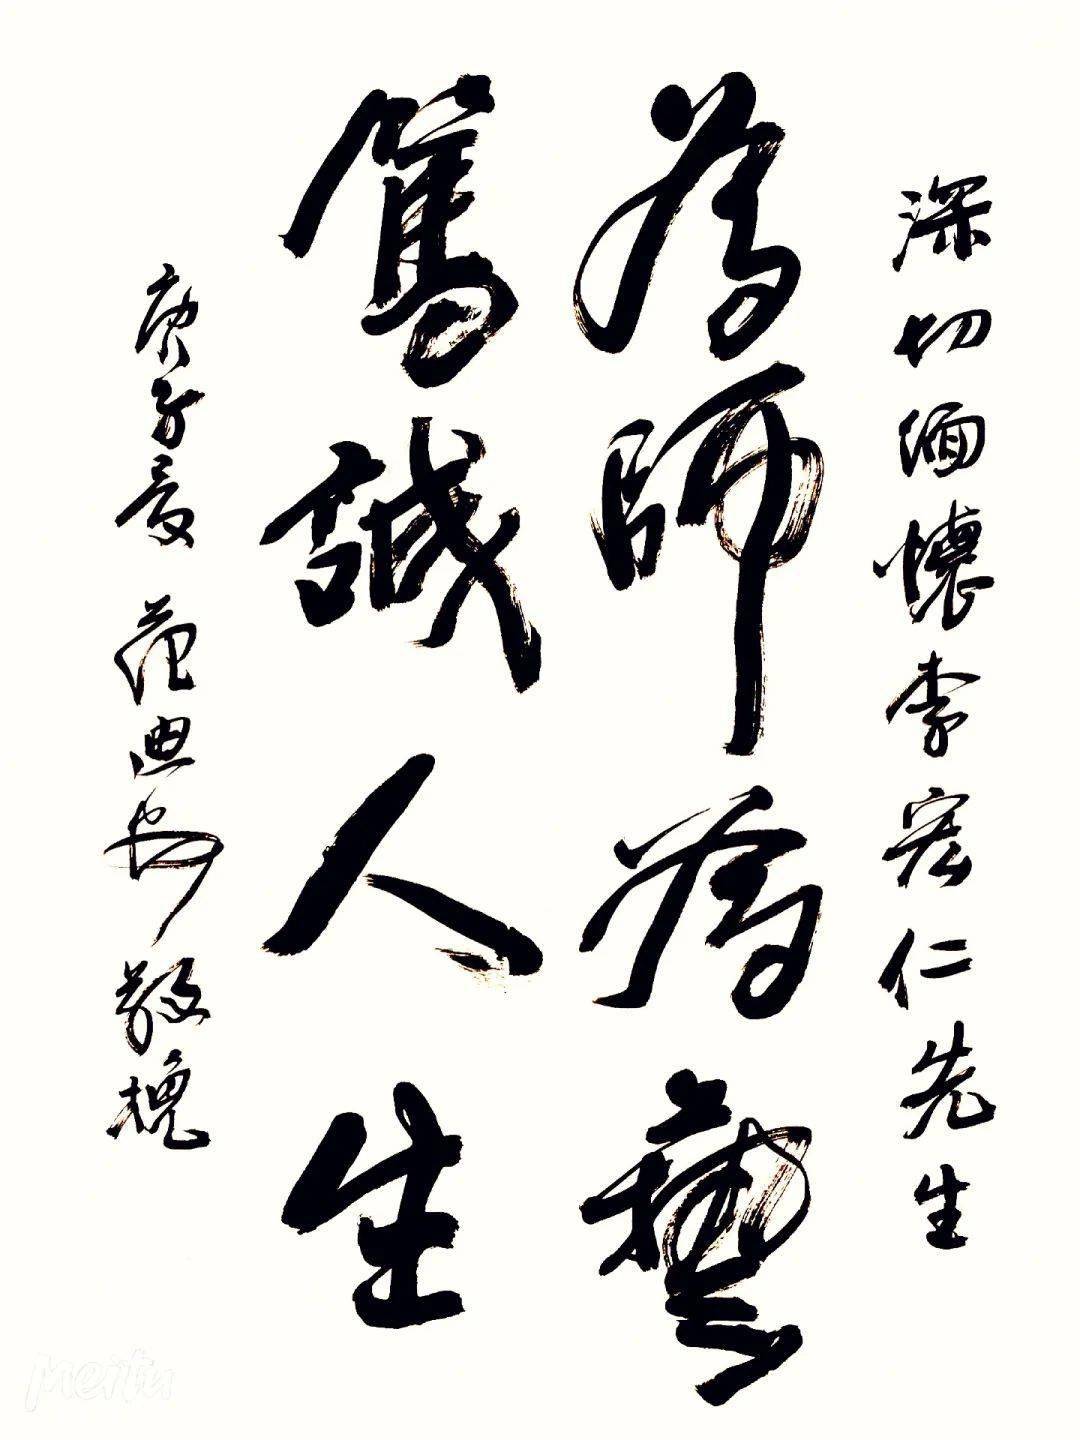 深切緬懷李宏仁先生
為師為藝
篤誠人生
庚子夏 范迪安敬挽
Meitu